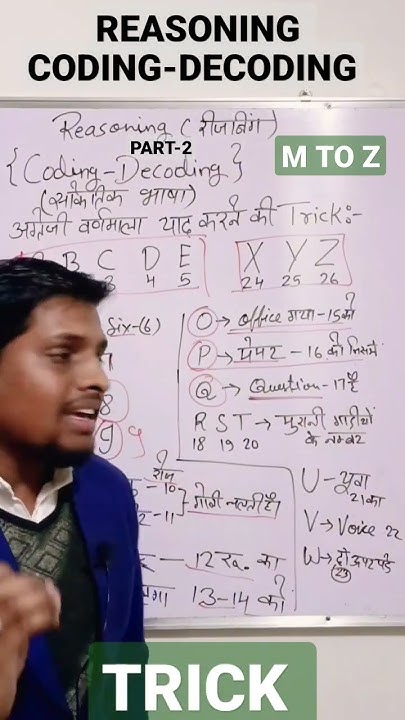 REASONING
CODING-DECODING
Reasoning (रीजनिंग)
PART-2
M TO Z
{Coding-Decoding}
(सांकेतिक भाषा)
अंग्रेजी वर्णमाला याद करने की Trick:-
B C D E
3 4 5
X Y Z
24 25 26
Six-(6)
7
8
9 9
O → office गया - 15 को
P → पेपर - 16 को जिसमें
Q → Question - 17 है
R S T → पुरानी गाड़ीयों
18 19 20 के नम्बर
रोज
-10
-11
गोली चलती है।
12 रू. का
13-14 को
U - युवा
21 का
V → Voice 22
W →
23
TRICK